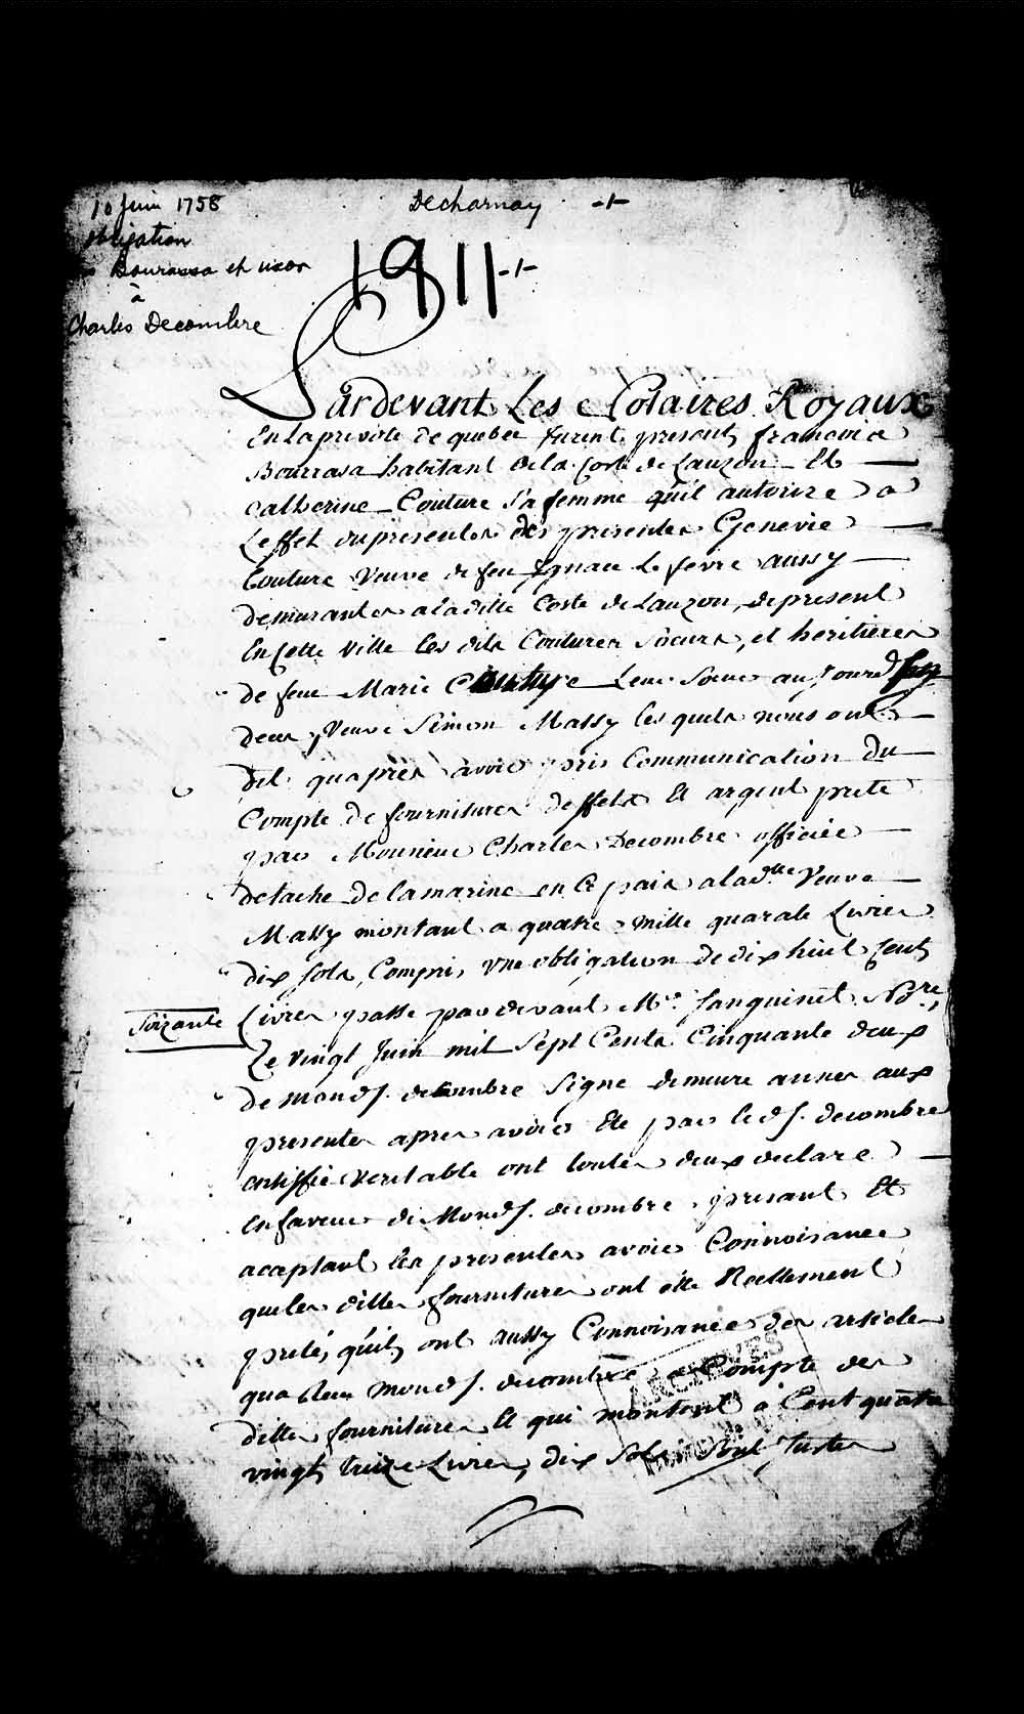 10 Juin 1758
Obligation
Bourassa et uxor
à
Charles Decombre
Decharnay
1911
Pardevant Les Notaires Royaux
En La prevoté de quebec furent presents francois
Bourasa habitant de la Coste de Lauzon Et
Catherine Couture Sa femme quil autorise a
Leffet des presentes Genevie
Couture Veuve de feu Ignace Le fevre aussy
demurantes a la ditte Coste de Lauzon, de present
En Cette Ville les dits Coutures Soeurs, et heritieres
de feue Marie Couture Leur Soeur au jour
Veuve Simon Massy les quels nous ont
dit quaprès avoir pris Communication du
Compte de fournitures deffets Et argent prete
par Monsieur Charles Decombre officier
detaché de la marine en Ce païs a lad.tte Veuve
Massy montant a quatre mille quarate Livres
dix sols, Compris une obligation de dix huit Cents
Soizante
Livres passé pardevant M.e Sanguinet No.re,
Le vingt Juin mil Sept Cents Cinquante deux
De mond S. decombre Signé demeure annex aux
presentes apres avoir Ete par led S. decombre
certiffié veritable ont toutes deux declaré
en faveur de Mond S. decombre present Et
acaptant les presentes avoir Connoisance
que les dittes fournitures ont été Reellement
pretés, quils ont aussy Connoisance des articles
mond S. decombre a Compte des
dittes fournitures Et qui montent a Cent quatre
vingt, treize Livres, dix Sols Sont Justes
ARCHIVES